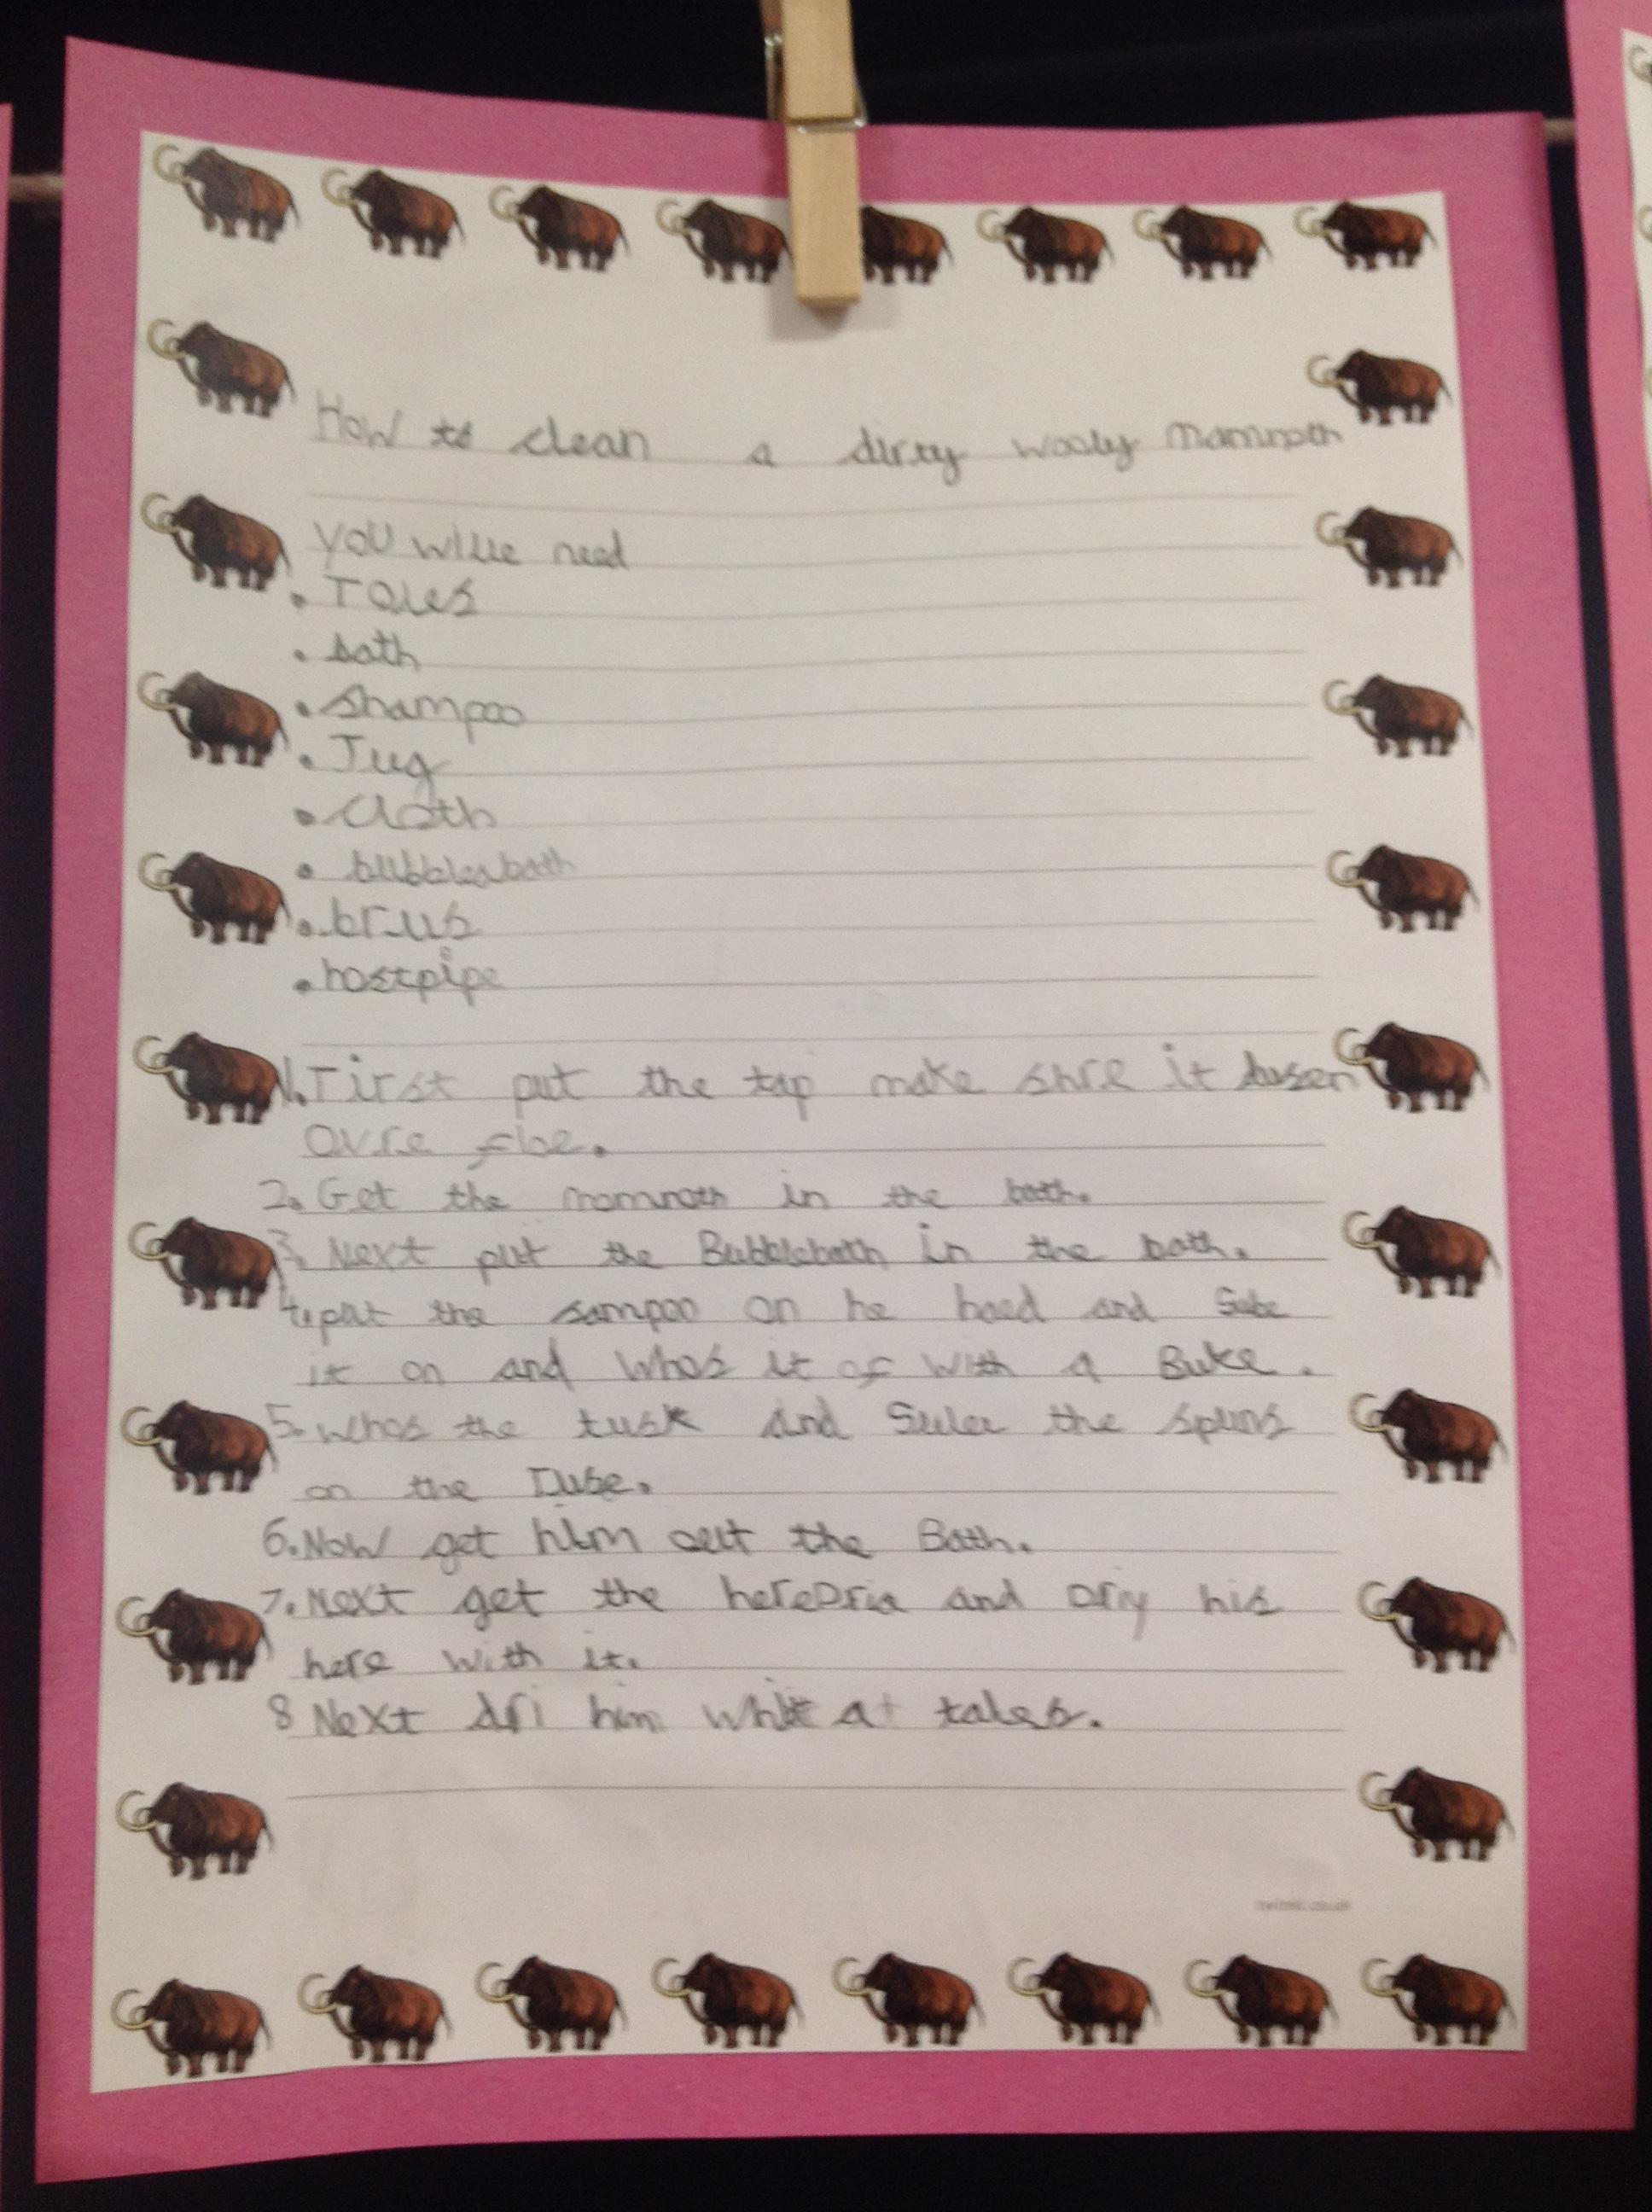 How to clean a dirty wooly mammoth
you wille need
• Toues
• bath
• shampoo
• Jug
• cloth
• bubblesbath
• brus
• hostpipe
1. First put the tap make shre it
ovre floe.
2. Get the mammoth in the bath.
3. Next put the Bubblebath in the bath.
4. put the sampoo on he haed and
it on and whos it of with a Buke.
5. whos the tusk and the
on the
6. Now get him out the Bath.
7. Next get the hereDria and Driy his
here with it.
8 Next dri him at tales.
twinkl.co.uk